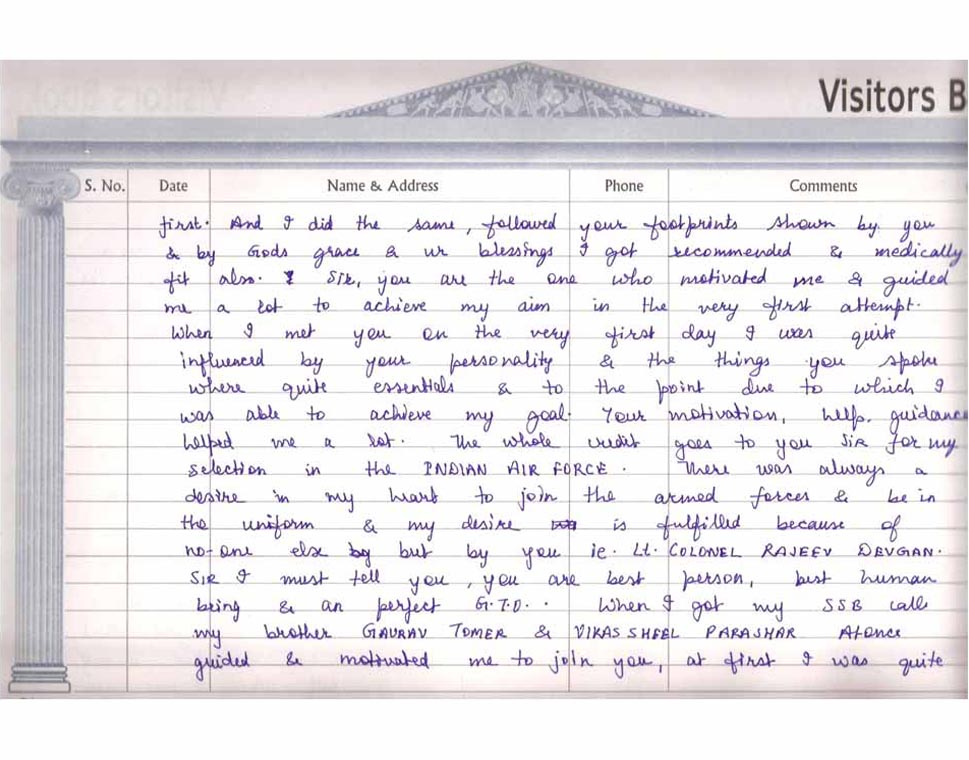 Visitors B
S. No. Date Name & Address Phone Comments
first. And I did the same, followed your footprints shown by you
& by Gods grace & ur blessings I got recommended & medically
fit also. Sir, you are the one who motivated me & guided
me a lot to achieve my aim in the very first attempt.
When I met you on the very first day I was quite
influenced by your personality & the things you spoke
where quite essentials & to the point due to which I
was able to achieve my goal. Your motivation, help, guidance
helped me a lot. The whole credit goes to you Sir for my
selection in the INDIAN AIR FORCE. There was always a
desire in my heart to join the armed forces & be in
the uniform & my desire is fulfilled because of
no-one else but by you ie. Lt. COLONEL RAJEEV DEVGAN.
Sir I must tell you, you are best person, best human
being & an perfect G.T.O.. When I got my SSB call
my brother GAURAV TOMER & VIKAS SHEEL PARASHAR Atonce
guided & motivated me to join you, at first I was quite